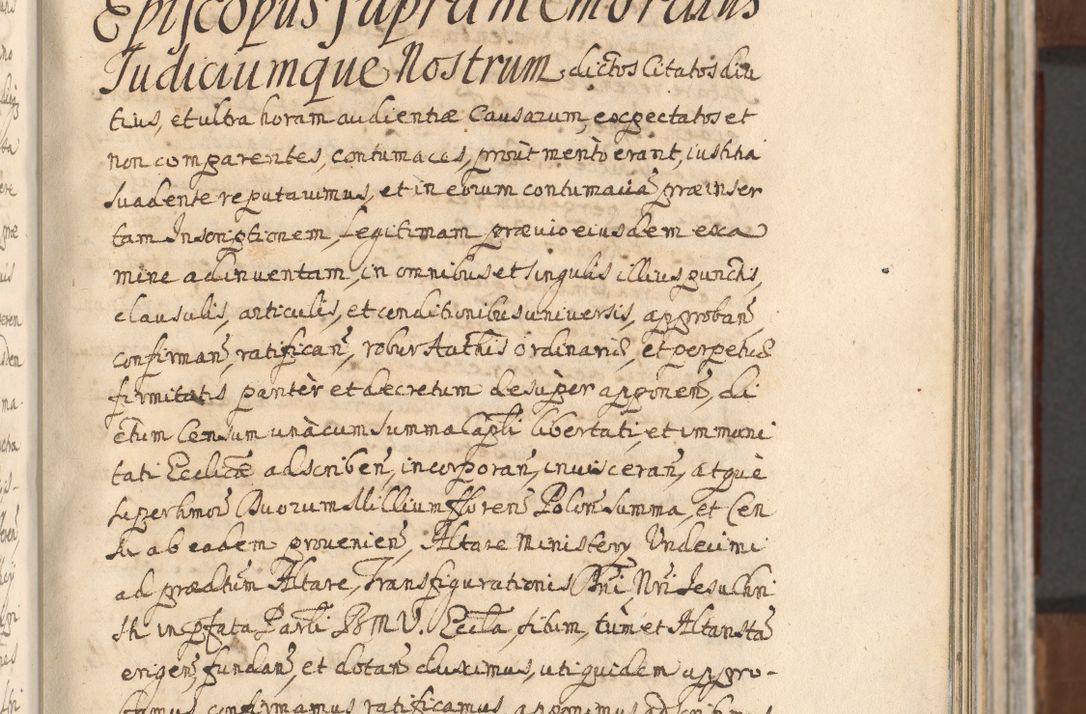 Episcopus supra memoratus
Judiciumque Nostrum, dictos Citatos diu
tius, et ultra horam audientiæ Causarum, excpectatos et
non comparentes, contumaces, proùt meritò erant, iustitia
suadente reputavimus, et in eorum contumaciã præinser
tam Inscriptionem, legitimam prævio eiusdem exa
mine adinventam, in omnibus et singulis illius punctis,
clausulis, articulis, et conditionibus universis, approban̄,
confirman̄, ratifican̄, robur Authis ordinariæ, et perpetuæ
firmitatis paritèr et decretum desùper apponen̄, di
ctum Censum unà cum summa Capli libertati, et immuni
tati Ecclicæ adscriben̄, incorporan̄, inuisceran̄, atquè
super hmoi Duorum Millium floren̄ Polon̄ summa, et Cen
su ab eadem provenien̄, Altare Ministerÿ Undecimi
ad prædictum Altare, Transfigurationis Dni Nri Jesu Chri
sti in pfata Parli B M V. Eccla, situm, tùm et Altaristã
erigen̄, fundan̄, et dotan̄ duximus, uti quidem appro-
bamus confirmamus ratificamus apponimus adscribimus